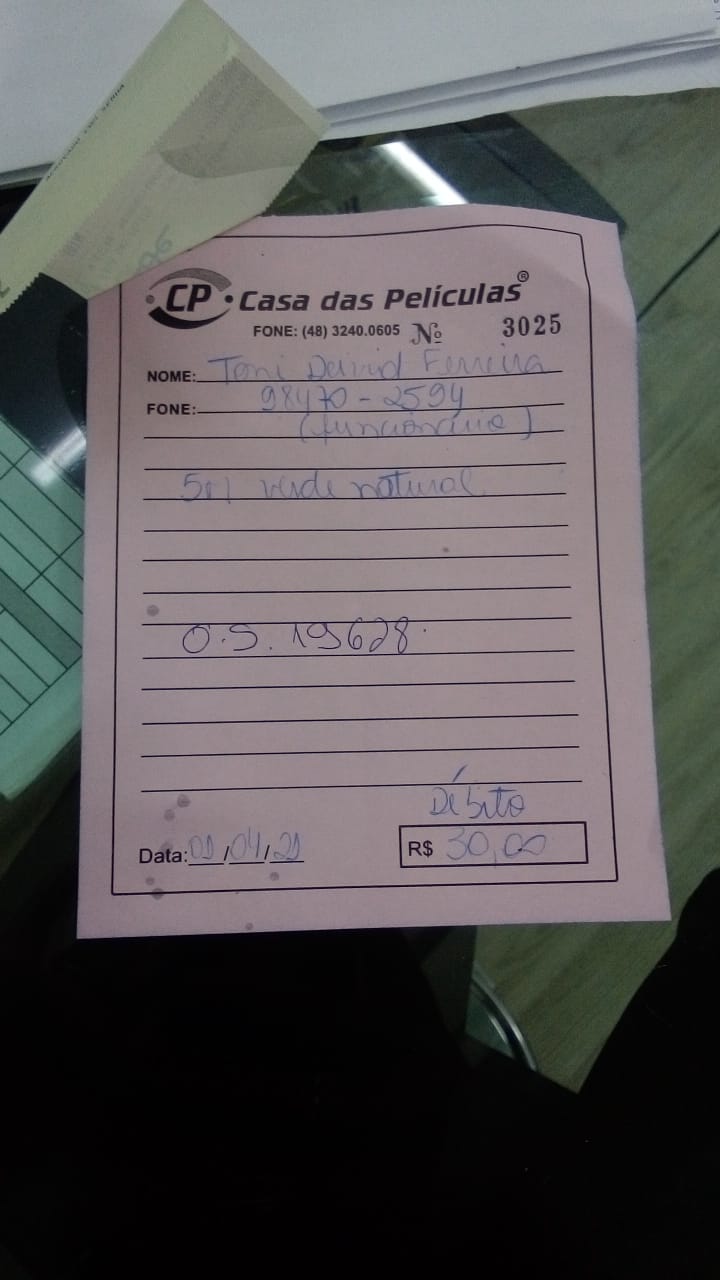 CP • Casa das Películas®
FONE: (48) 3240.0605 Nº 3025
NOME: Toni David Ferreira
FONE: 98470-2594
(funcionário)
verde natural
O.S. 19628.
Débito
Data: /04/ R$ 30,00